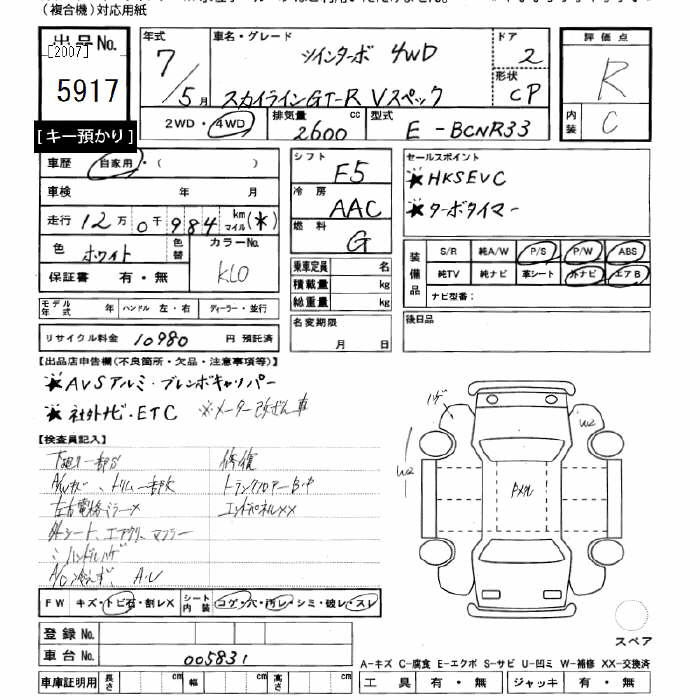 (複合機)対応用紙
出品No.
[2007]
5917
[キー預かり]
年式
7/5月
車名・グレード
ツインターボ 4WD
スカイラインGT-R Vスペック
ドア
2
形状
CP
2WD・4WD
排気量 2600 cc
型式 E-BCNR33
評価点
R
内装
C
車歴 自家用・( )
車検 年 月
走行 12万0千984 km マイル (*)
色 ホワイト 色替
カラーNo.
KL0
保証書 有・無
モデル年式 年 ハンドル 左・右 ディーラー・並行
リサイクル料金 10980 円 預託済
シフト
F5
冷房
AAC
燃料
G
乗車定員 名
積載量 kg
総重量 kg
名変期限
月 日
セールスポイント
★HKSEVC
★ターボタイマー
装備品
S/R 純A/W P/S P/W ABS
純TV 純ナビ 革シート 外ナビ エアB
ナビ型番:
後日品
【出品店申告欄(不良箇所・欠品・注意事項等)】
★AVSアルミ・ブレンボキャリパー
★社外ナビ・ETC ※メーター改ざん車
【検査員記入】
下廻り一部サビ
修復
左右電格ミラー×
トランクフロアー
エンドパネルXX
外シート、エアクリ、マフラー
ハンドルハゲ
A・U
ハゲ
W2
W2
FW キズ・トビ石・割レX シート内装 コゲ・穴・汚レ・シミ・破レ・スレ
登録No.
車台No. 005831
車庫証明用 長さ cm 幅 cm 高さ cm
スペア
A-キズ C-腐食 E-エクボ S-サビ U-凹ミ W-補修 XX-交換済
工具 有・無 ジャッキ 有・無